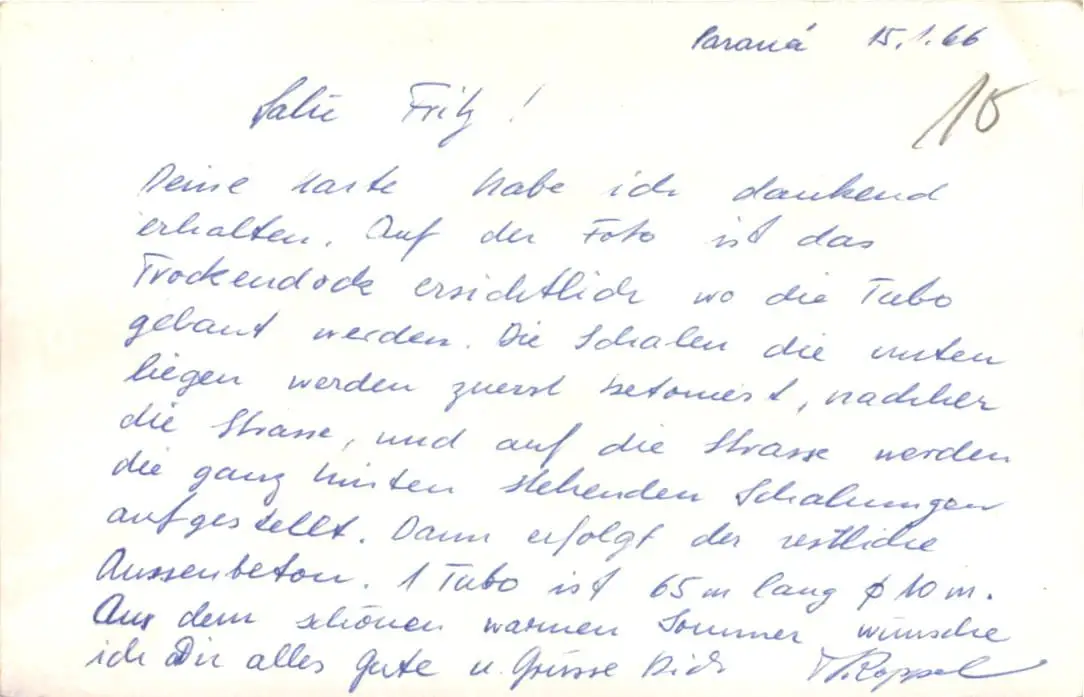 Paraná 15.1.66
10
Salü Fritz!
Deine Karte habe ich dankend
erhalten. Auf der Foto ist das
Trockendock ersichtlich wo die Tubo
gebaut werden. Die Schalen die unten
liegen werden zuerst betoniert, nachher
die Strasse, und auf die Strasse werden
die ganz hinten stehenden Schalungen
aufgestellt. Dann erfolgt der restliche
Aussenbeton. 1 Tubo ist 65 m lang ϕ 10 m.
Aus dem schönen warmen Sommer wünsche
ich Dir alles Gute u. Grüsse Dich